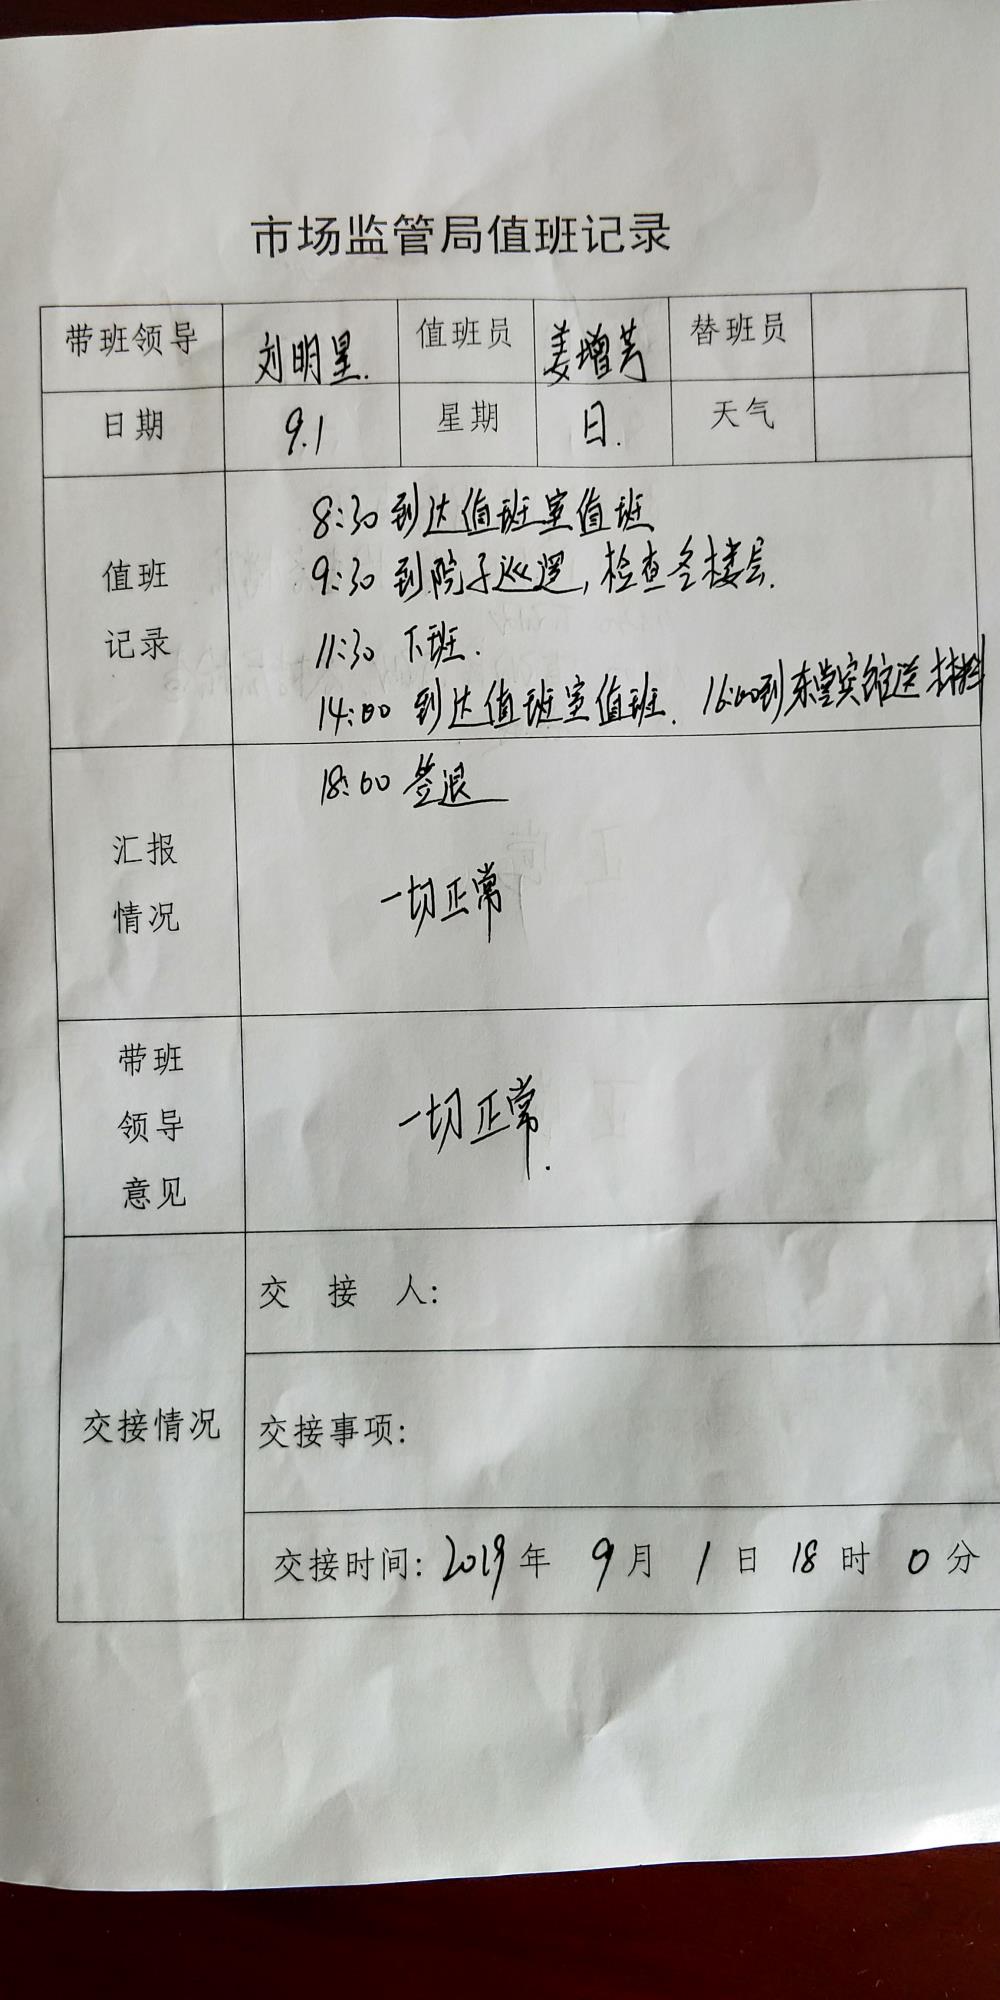 市场监管局值班记录
带班领导 刘明星. 值班员 姜增芳 替班员
日期 9.1 星期 日. 天气
值班记录
8:30 到达值班室值班
9:30 到院子巡逻,检查各楼层.
11:30 下班.
14:00 到达值班室值班. 16:00到东堂宾馆送材料
18:00 签退
汇报情况
一切正常
带班领导意见
一切正常.
交接情况
交接人:
交接事项:
交接时间: 2019年 9月 1日 18时 0分